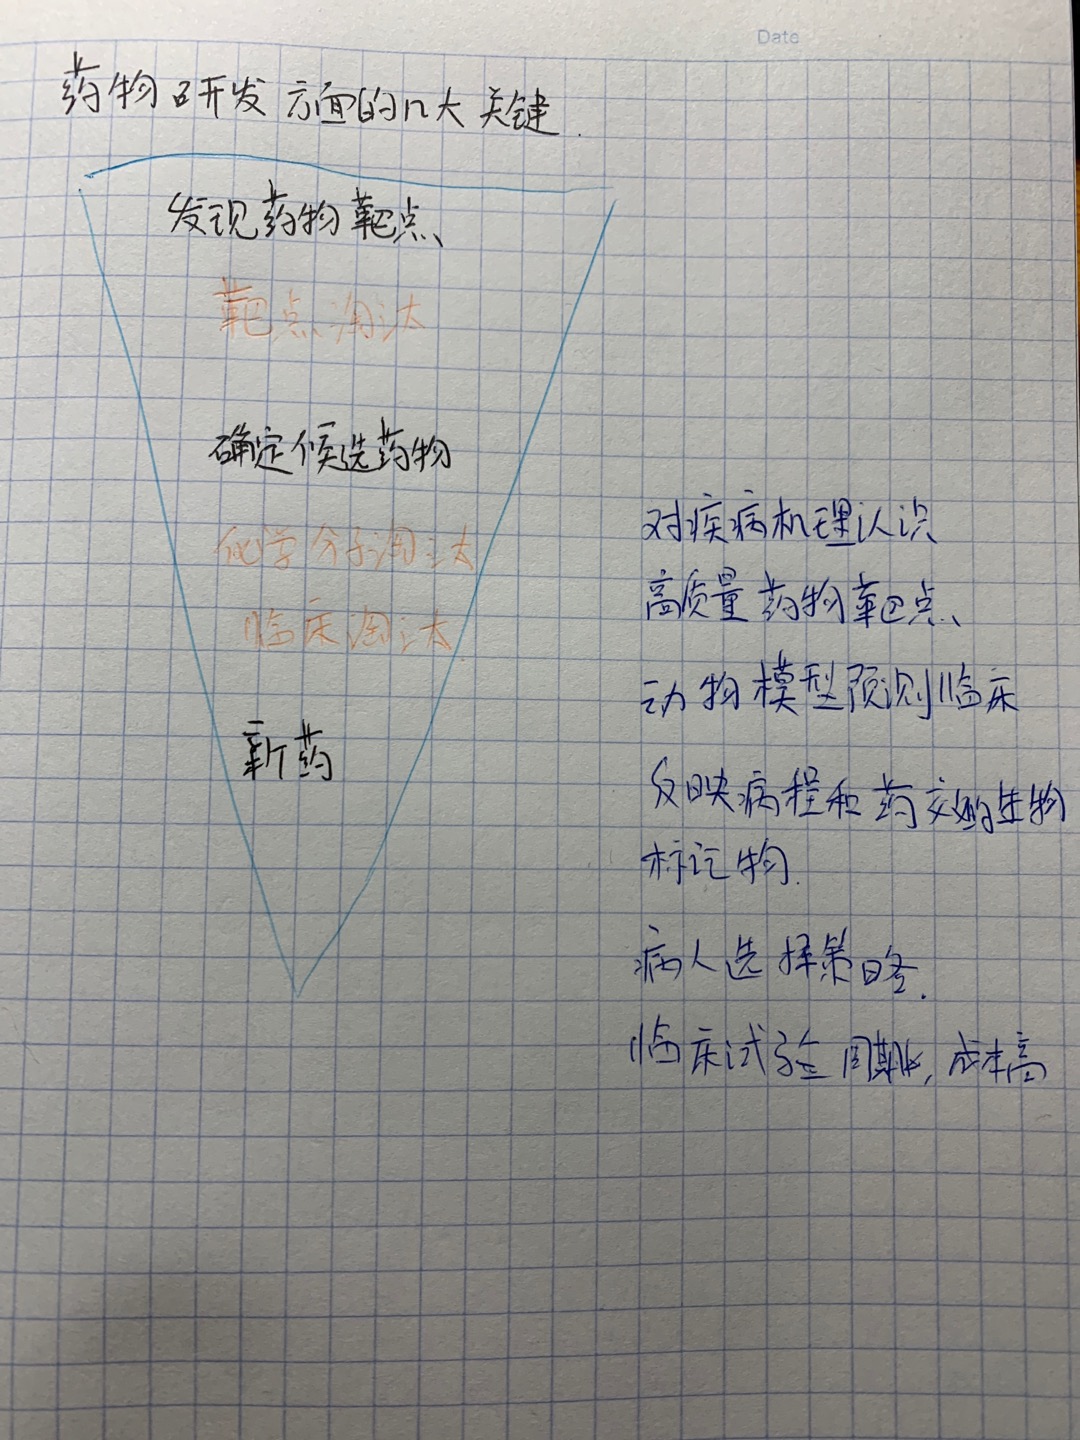 Date
药物研发方面的几大关键.
发现药物靶点
靶点淘汰
确定候选药物
化学分子淘汰
临床淘汰
新药
对疾病机理认识
高质量药物靶点
动物模型预测临床
反映病程和药效的生物
标记物.
病人选择策略.
临床试验周期长,成本高